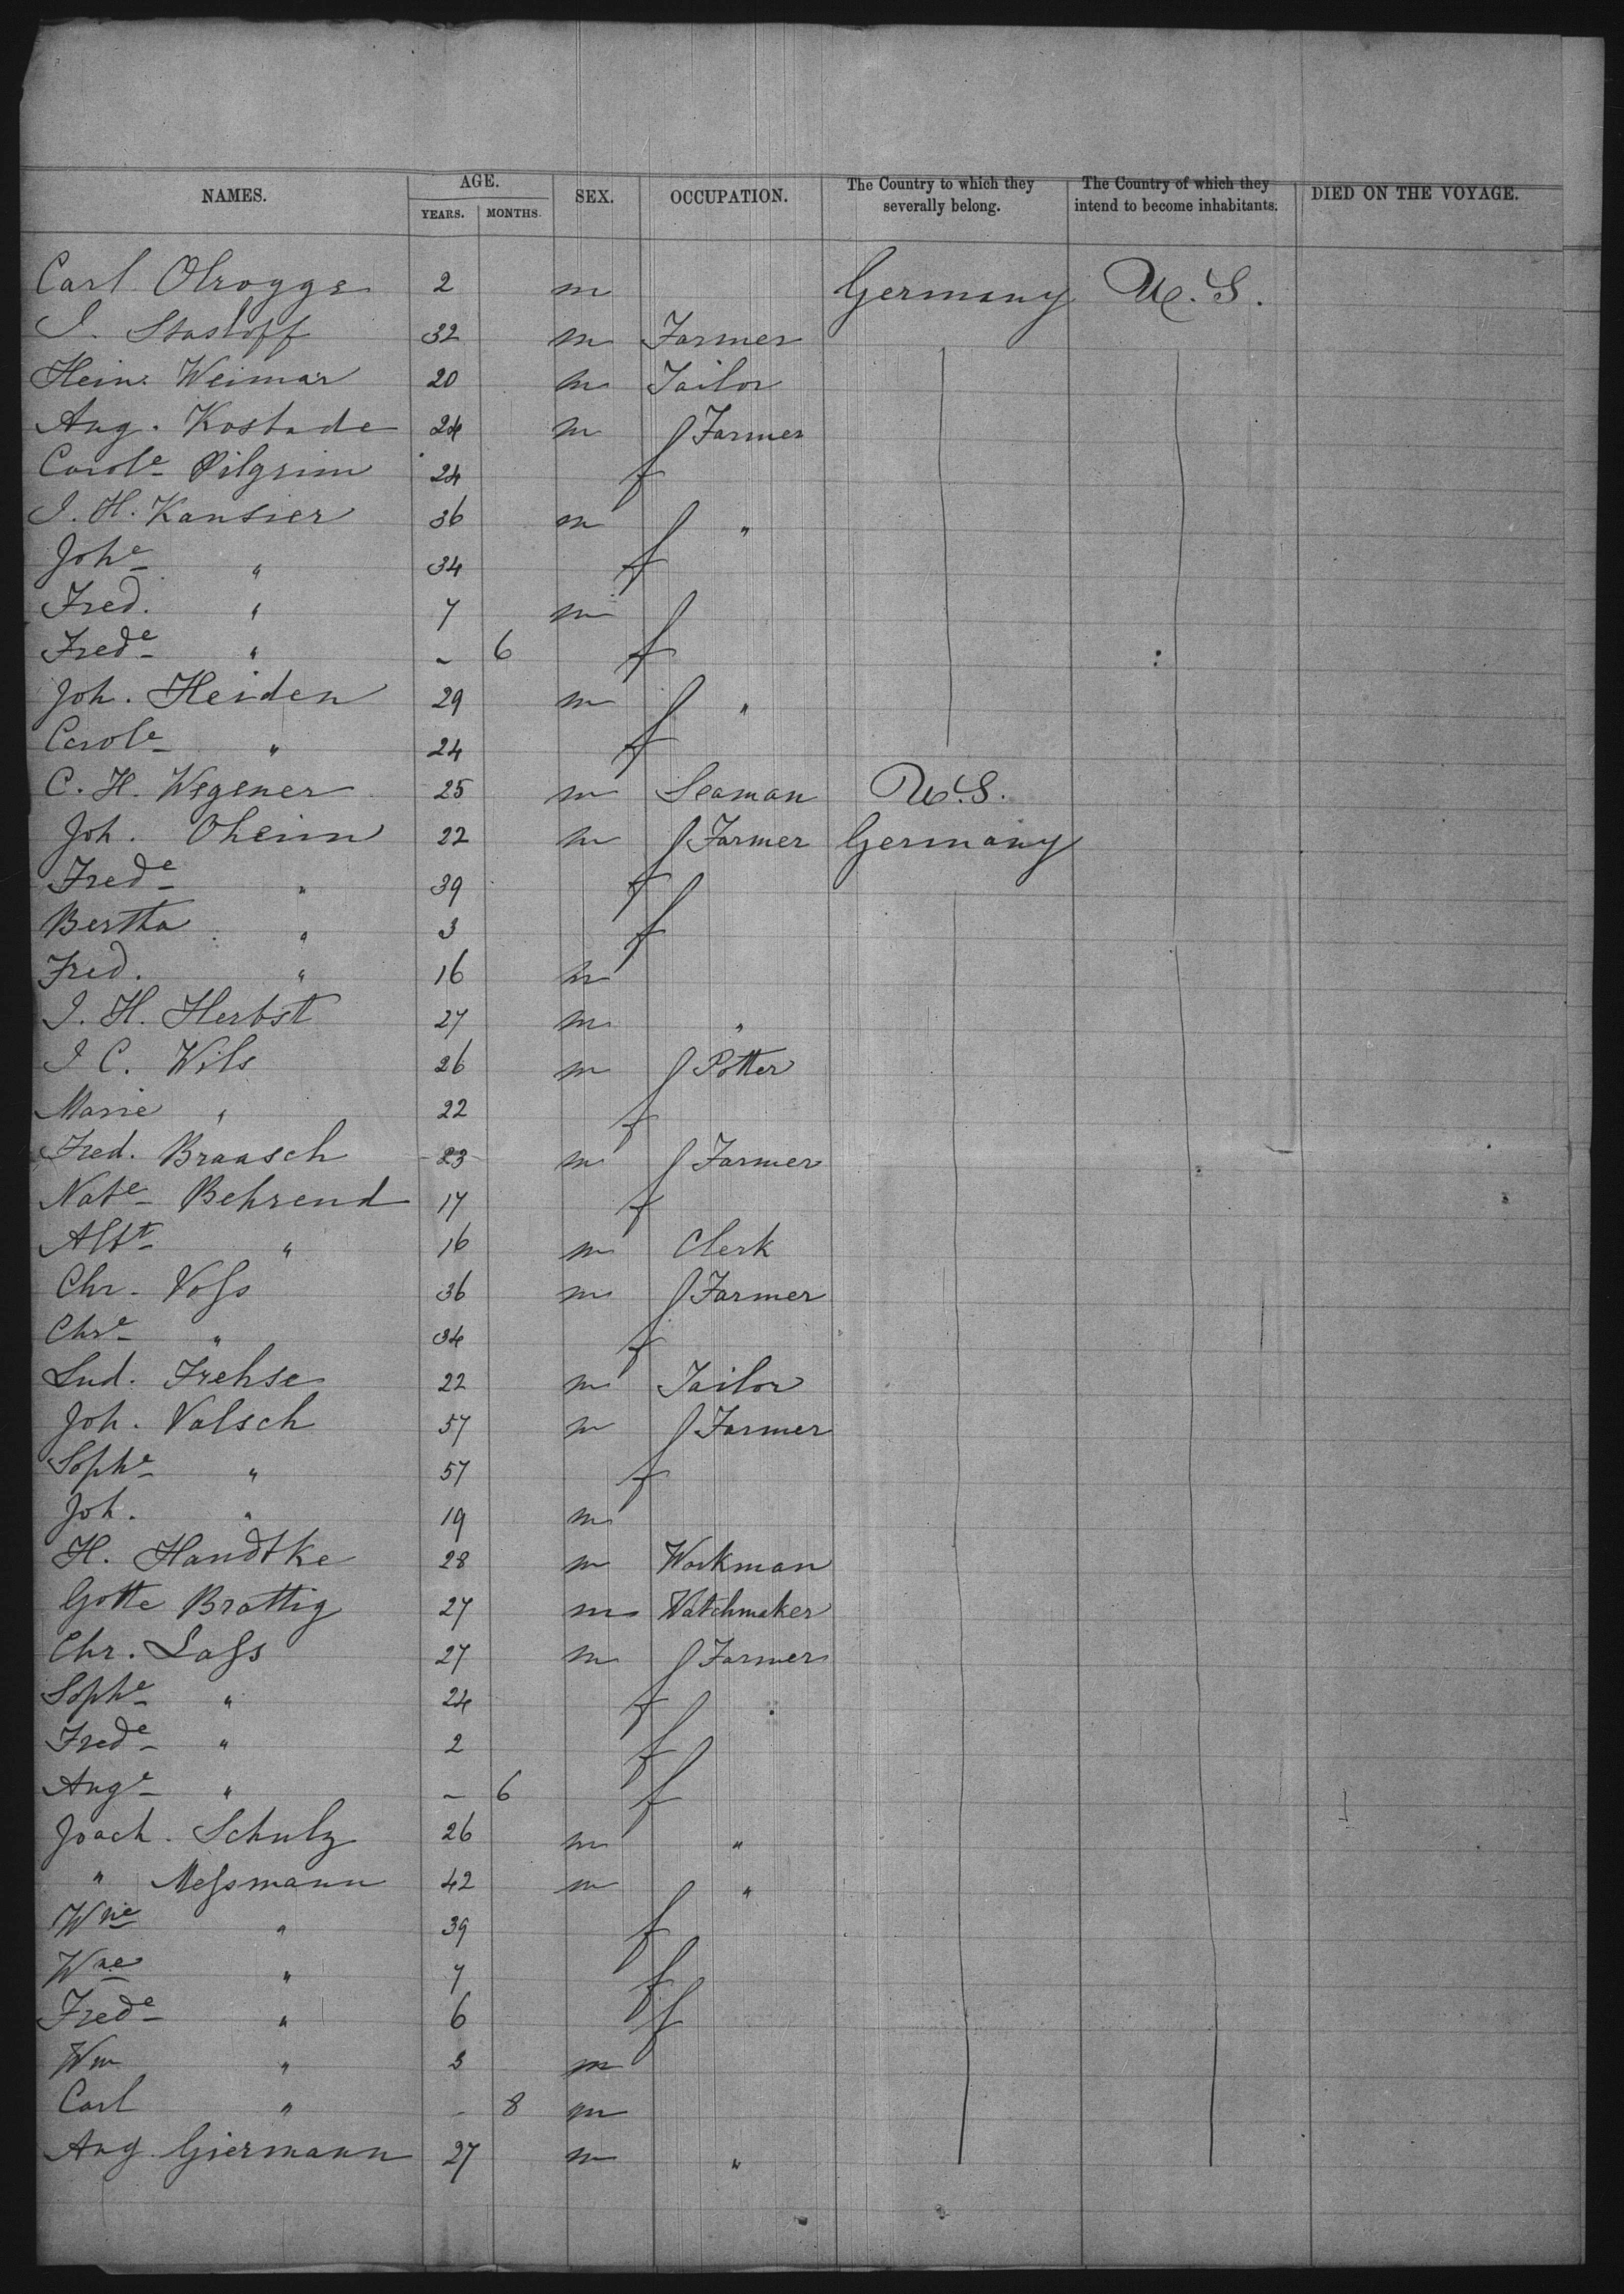 NAMES. AGE. SEX. OCCUPATION. The Country to which they severally belong. The Country of which they intend to become inhabitants. DIED ON THE VOYAGE.
YEARS. MONTHS.
Carl Olrogge 2 m Germany U.S.
J. Stasloff 32 m Farmer
Hein. Weimar 20 m Tailor
Aug. Kostade 24 m Farmer
Carole Pilgrim 24 f
J. H. Kansier 36 m "
Johe " 34 f
Fred. " 7 m
Frede " – 6 f
Joh. Heiden 29 m "
Carole " 24 f
C. H. Wegener 25 m Seaman U.S.
Joh. Oheim 22 m Farmer Germany
Frede " 39 f
Bertha " 3 f
Fred. " 16 m
J. H. Herbst 27 m "
J C. Wils 26 m Potter
Marie " 22 f
Fred. Braasch 23 m Farmer
Nate Behrend 17 f
Albt " 16 m Clerk
Chr. Voſs 36 m Farmer
Chre " 34 f
Lud. Frehse 22 m Tailor
Joh. Valsch 57 m Farmer
Sophe " 57 f
Joh. " 19 m
H. Handtke 28 m Workman
Gotte Brattig 27 m Watchmaker
Chr. Laſs 27 m Farmer
Sophe " 24 f
Frede " 2 f
Auge " – 6 f
Joach. Schulz 26 m "
" Meſsmann 42 m "
Wne " 39 f
Wne " 7 f
Frede " 6 f
Wm " 3 m
Carl " – 8 m
Aug. Giermann 27 m "